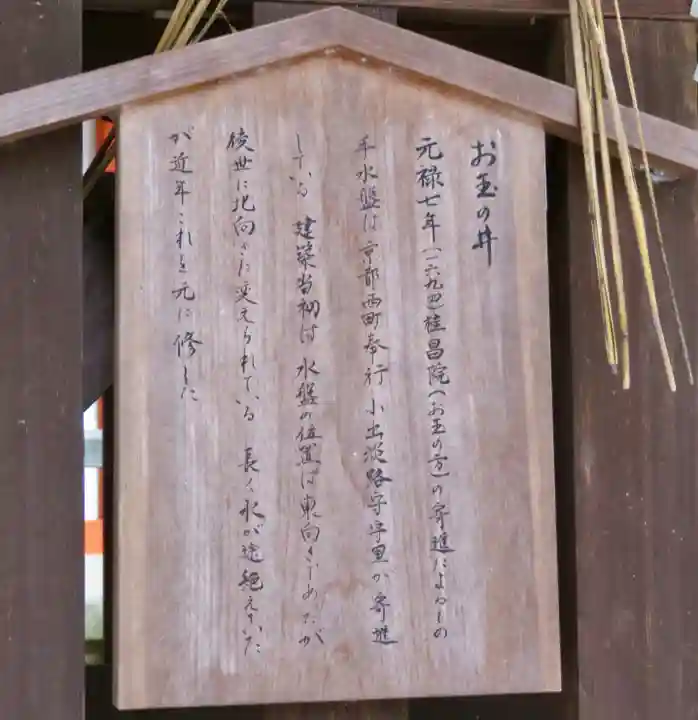 お玉の井
元禄七年(一六九四)桂昌院(お玉の方)の寄進によるもの
手水盤は 京都西町奉行 小出淡路守守里が寄進
している 建築当初は 水盤の位置は東向きであったが
後世に北向きに変えられている 長く水が途絶えていた
が近年これを元に修した